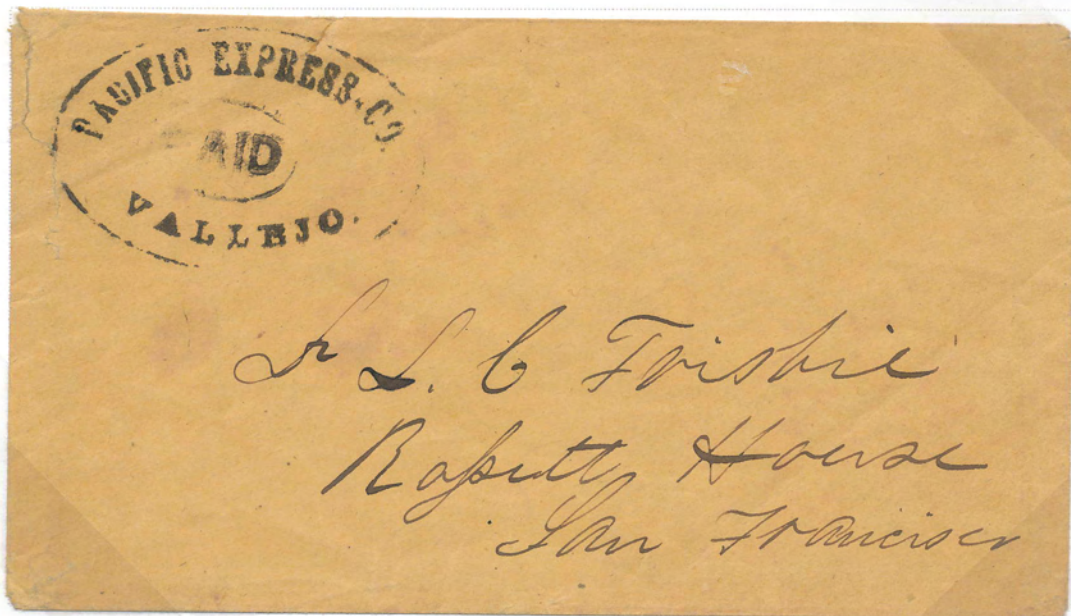 PACIFIC EXPRESS CO.
PAID
VALLEJO.
Dr L. C Frisbie
Rassette House
San Francisco